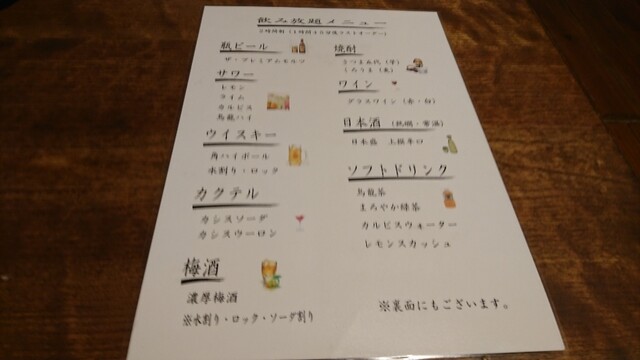 飲み放題メニュー
瓶ビール
ザ・プレミアムモルツ
サワー
レモン
ライム
カルピス
烏龍ハイ
ウイスキー
角ハイボール
水割り・ロック
カクテル
カシスソーダ
カシスウーロン
梅酒
濃厚梅酒
※水割り・ロック・ソーダ割り
焼酎
さつま五代（芋）
くろうま（麦）
ワイン
グラスワイン（赤・白）
日本酒（熱燗・常温）
日本盛 上撰辛口
ソフトドリンク
烏龍茶
まろやか緑茶
カルピスウォーター
レモンスカッシュ
※裏面にもございます。